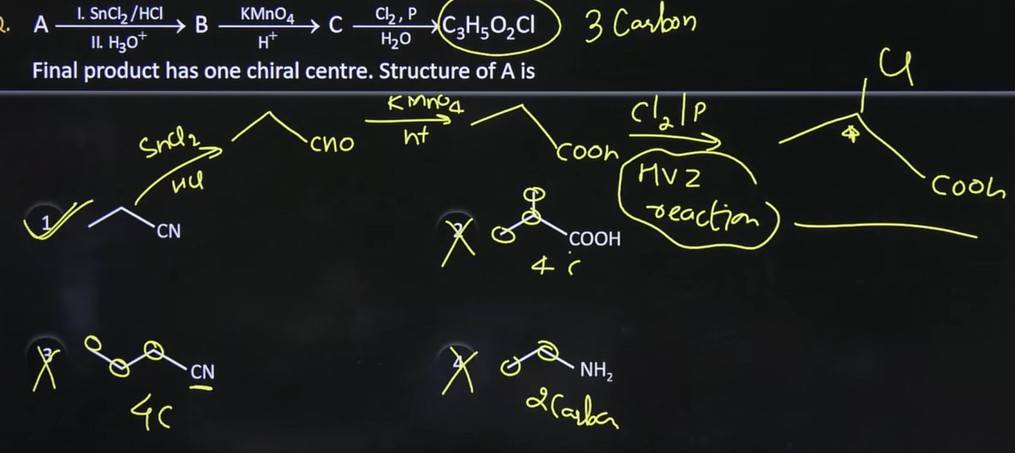 2. A I. SnCl₂/HCl II. H₃O⁺ → B KMnO₄ H⁺ → C Cl₂, P H₂O → C₃H₅O₂Cl 3 Carbon
Final product has one chiral centre. Structure of A is
Cl
SnCl₂ HCl CHO
KMnO₄ H⁺ COOH
Cl₂/P
HVZ reaction
COOH
1 CN
2 COOH
4 C
3 CN
4C
4 NH₂
2 Carbon